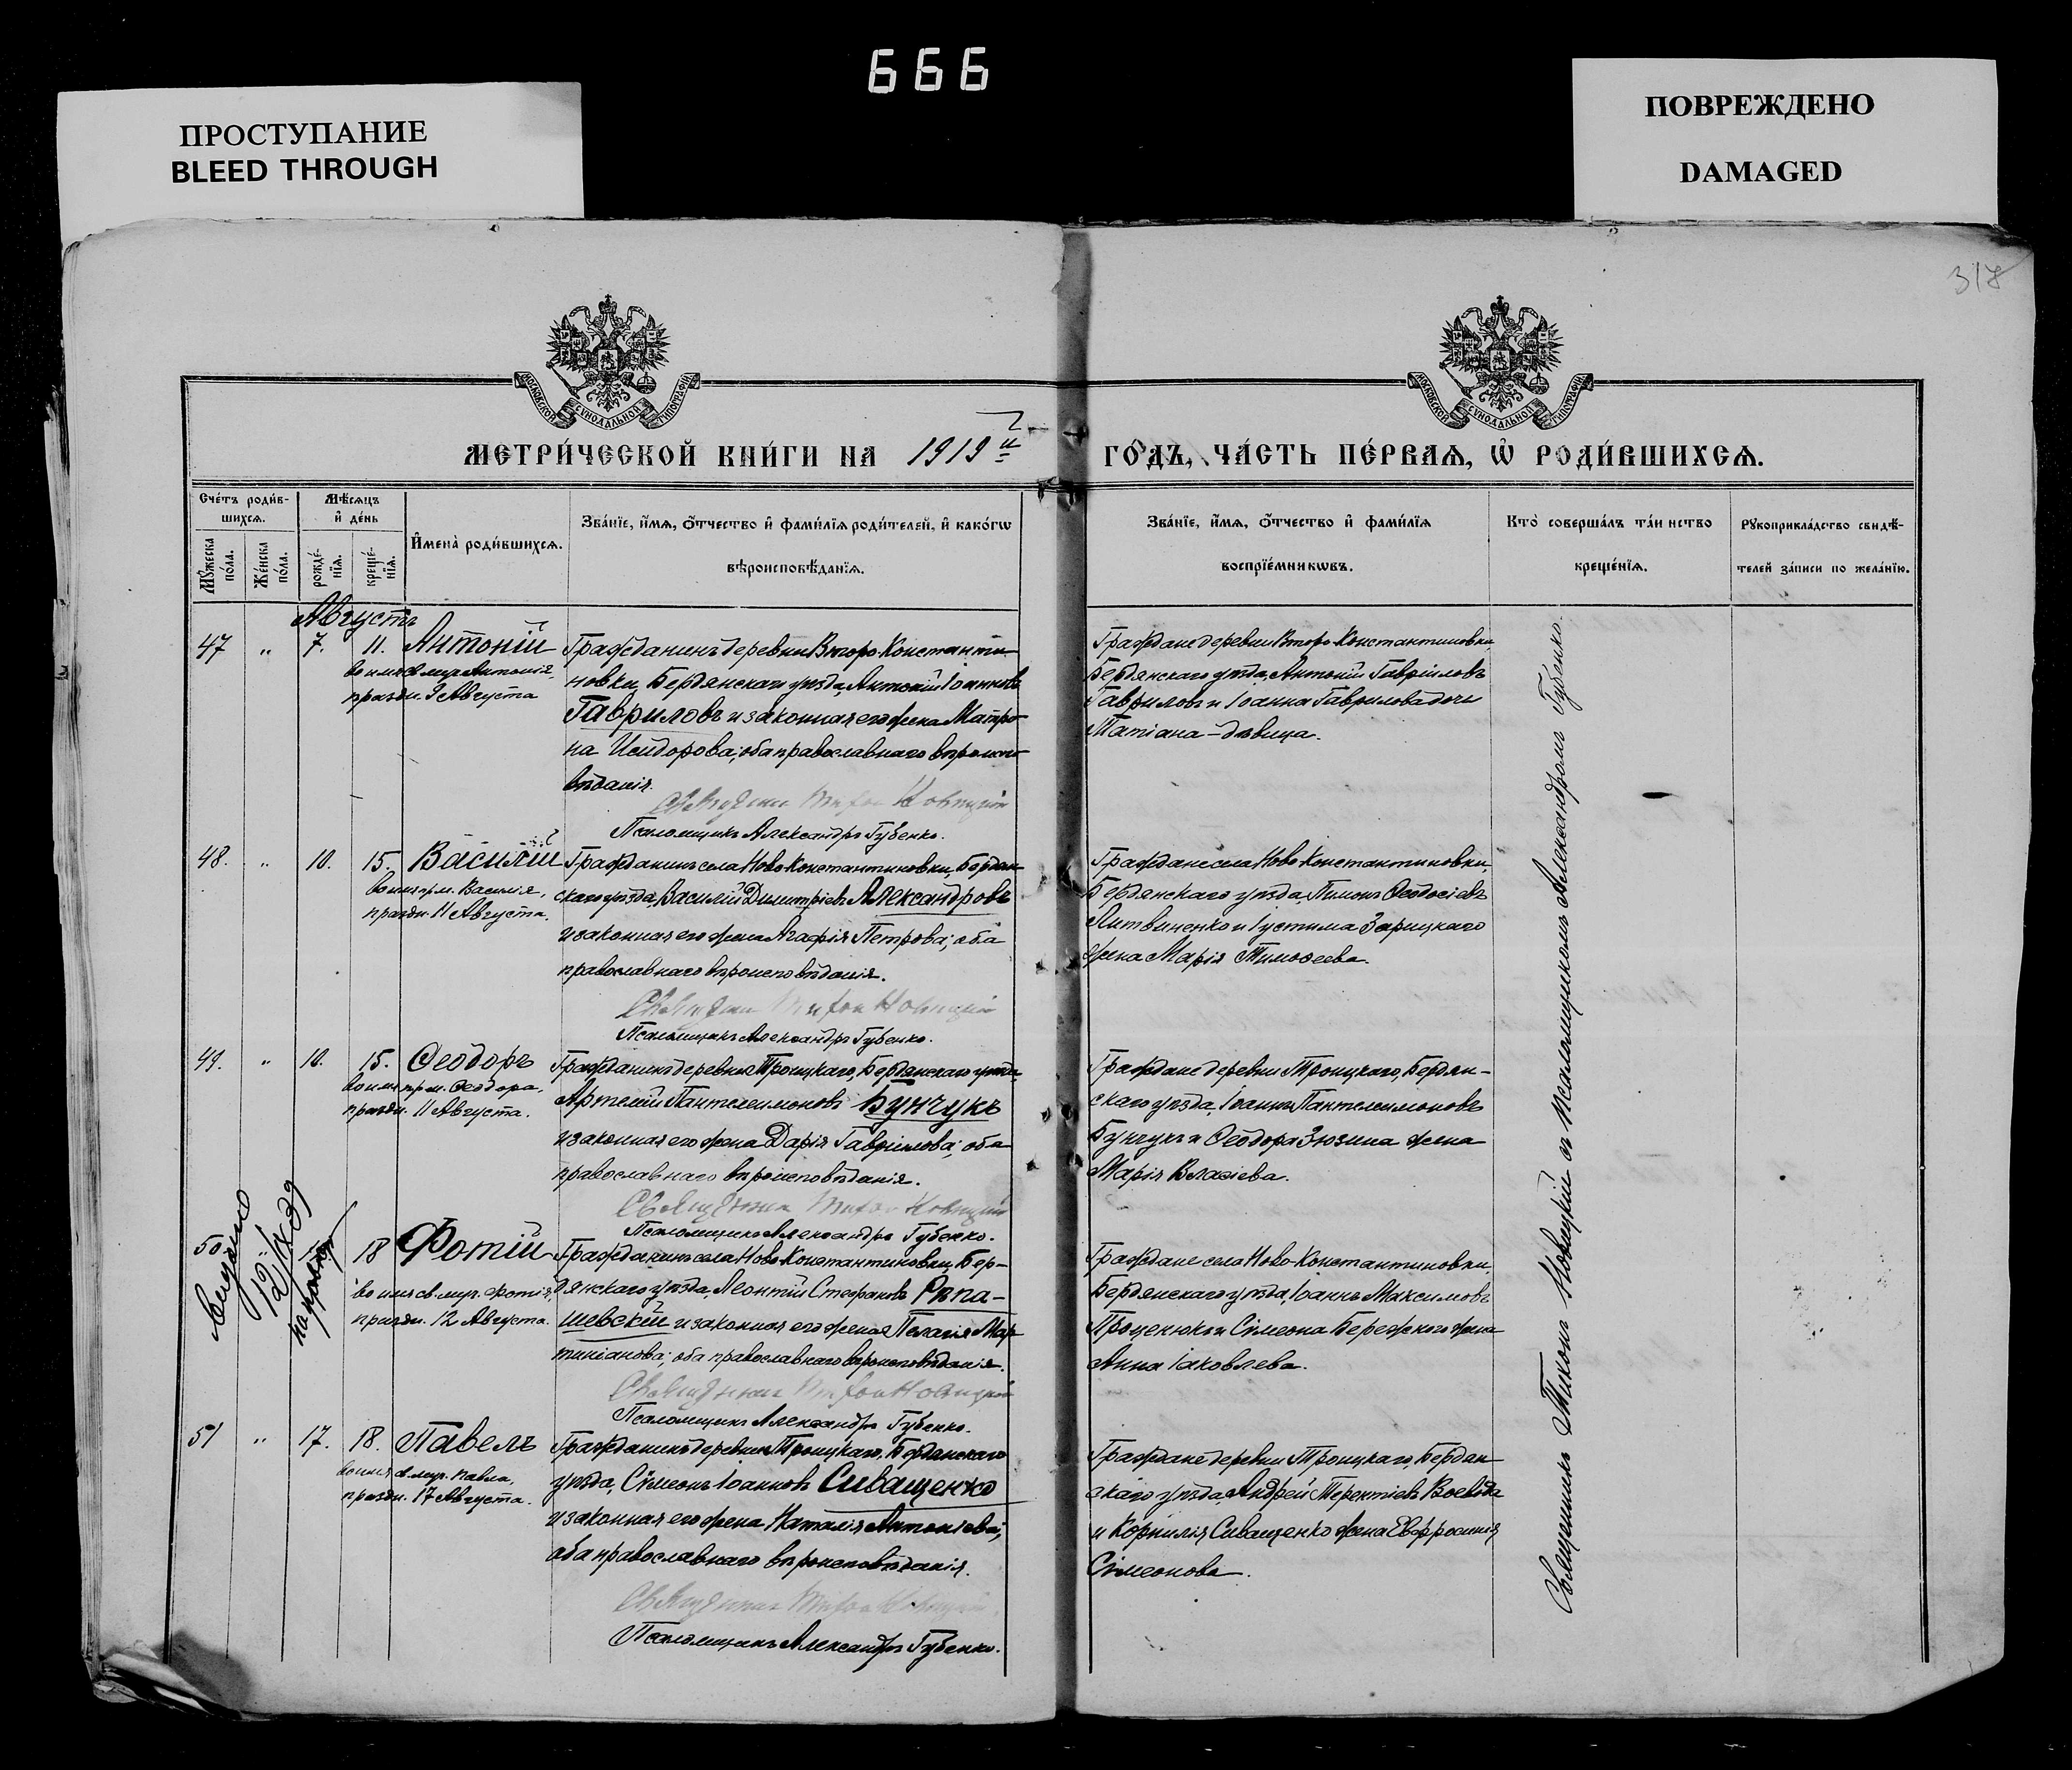 666
ПРОСТУПАНИЕ
BLEED THROUGH
ПОВРЕЖДЕНО
DAMAGED
318
МОСКОВСКОЙ СѴНОДАЛЬНОЙ ТИПОГРАФІИ
МОСКОВСКОЙ СѴНОДАЛЬНОЙ ТИПОГРАФІИ
МЕТРИ́ЧЕСКОЙ КНИ́ГИ НА 1919й
ГО́ДЪ, ЧА́СТЬ ПЕ́РВАѦ, Ѡ҆ РОДИ́ВШИХСѦ.
Сче́тъ роди́в-
шихсѧ.
Мѣ́сѧцъ
и҆ де́нь
Мꙋ́жеска по́ла.
Же́нска по́ла.
рожде́-нїѧ.
креще́-нїѧ.
И҆мена̀ роди́вшихсѧ.
Зва́нїе, и҆́мѧ, ѻ҆́тчество и҆ фами́лїѧ роди́телей, и҆ како́гѡ
вѣроисповѣ́данїѧ.
Зва́нїе, и҆́мѧ, ѻ҆́тчество и҆ фами́лїѧ
воспрїе́мникѡвъ.
Кто̀ соверша́лъ та́инство
креще́нїѧ.
Рꙋкоприкла́дство свидѣ́-
телей за́писи по жела́нїю.
Августъ
47 " 7. 11. Антоній
во имя св. муч. Антонія,
праздн. 9 Августа
Гражданинъ деревни Второ-Константи-
новки, Бердянскаго уѣзда, Антоній Іоанновъ
Гавриловъ и законная его жена Матро-
на Исидорова; оба православнаго вѣроиспо-
вѣданія.
Священник Тихон Новицкій
Псаломщикъ Александръ Губенко.
Граждане деревни Второ-Константиновки,
Бердянскаго уѣзда, Антоній Гавріиловъ
Гавриловъ и Іоанна Гаврилова дочь
Татіана – дѣвица.
48. " 10. 15. Василій
во имя пр. м. Василія,
праздн. 11 Августа.
Гражданинъ села Ново-Константиновки, Бердян-
скаго уѣзда, Василій Димитріевъ Александровъ
и законная его жена Агафія Петрова; оба
православнаго вѣроисповѣданія.
Священник Тихон Новицкій
Псаломщикъ Александръ Губенко.
Граждане села Ново-Константиновки,
Бердянскаго уѣзда, Пимонъ Ѳеодосіевъ
Литвиненко и Іустина Зарицкаго
жена Марія Тимоѳеева.
49. " 10. 15. Ѳеодоръ
во имя пр. м. Ѳеодора,
праздн. 11 Августа.
Гражданинъ деревни Троицкаго, Бердянскаго уѣзда,
Артемій Пантелеимоновъ Бунчукъ
и законная его жена Дарія Гавріилова; оба
православнаго вѣроисповѣданія.
Священник Тихон Новицкій
Псаломщикъ Александръ Губенко.
Граждане деревни Троицкаго, Бердян-
скаго уѣзда, Іоаннъ Пантелеимоновъ
Бунчукъ и Ѳеодора Зюзина жена
Марія Власіева.
Видано
12/IX 39
паспорт
50 18 Фотій
во имя св. муч. Фотія,
праздн. 12 Августа.
Гражданинъ села Ново-Константиновки, Бер-
дянскаго уѣзда, Леонтій Стефановъ Ряпа-
шевскій и законная его жена Пелагія Мар-
тиніанова; оба православнаго вѣроисповѣданія.
Священник Тихон Новицкій
Псаломщикъ Александръ Губенко.
Граждане села Ново-Константиновки,
Бердянскаго уѣзда, Іоаннъ Максимовъ
Проценко и Сѵмеона Бережного жена
Анна Іаковлева.
51 " 17. 18. Павелъ
во имя св. муч. Павла,
праздн. 17 Августа.
Гражданинъ деревни Троицкаго, Бердянскаго
уѣзда, Сѵмеонъ Іоанновъ Сиващенко
и законная его жена Наталія Антоніева;
оба православнаго вѣроисповѣданія.
Священник Тихон Новицкій
Псаломщикъ Александръ Губенко.
Граждане деревни Троицкаго, Бердян-
скаго уѣзда, Андрей Терентіевъ Воевода
и Корнилія Сиващенко жена Евфросинія
Сѵмеонова.
Священникъ Тихонъ Новицкій съ псаломщикомъ Александромъ Губенко.